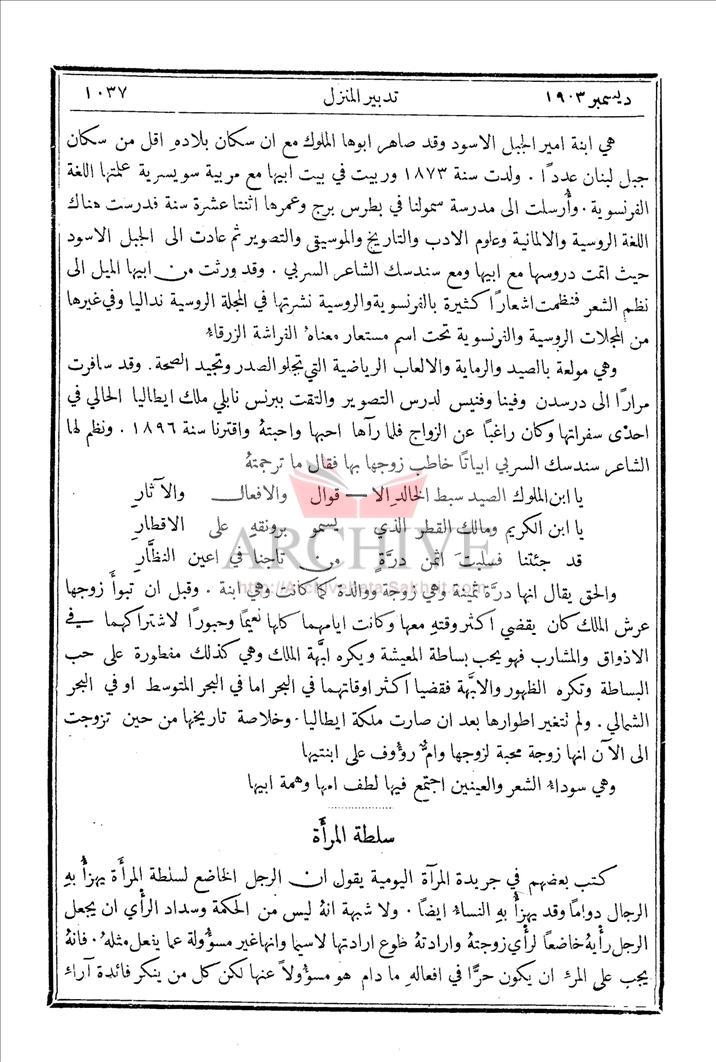 ديسمبر ١٩٠٣ تدبير المنزل ١٠٣٧
هي ابنة امير الجبل الاسود وقد صاهر ابوها الملوك مع ان سكان بلاده اقل من سكان
جبل لبنان عدداً . ولدت سنة ١٨٧٣ وربيت في بيت ابيها مع مربية سويسرية علمتها اللغة
الفرنسوية . وأُرسلت الى مدرسة سمولنا في بطرس برج وعمرها اثنتا عشرة سنة فدرست هناك
اللغة الروسية والالمانية وعلوم الادب والتاريخ والموسيقى والتصوير ثم عادت الى الجبل الاسود
حيث اتمت دروسها مع ابيها ومع سندسك الشاعر السربي . وقد ورثت من ابيها الميل الى
نظم الشعر فنظمت اشعاراً كثيرة بالفرنسوية والروسية نشرتها في المجلة الروسية نداليا وفي غيرها
من المجلات الروسية والفرنسوية تحت اسم مستعار معناه الفراشة الزرقاء
وهي مولعة بالصيد والرماية والالعاب الرياضية التي تجلو الصدر وتجيد الصحة . وقد سافرت
مراراً الى درسدن وفينا وفنيس لدرس التصوير والتقت ببرنس نابلي ملك ايطاليا الحالي في
احدى سفراتها وكان راغباً عن الزواج فلما رآها احبها واحبتهُ واقترنا سنة ١٨٩٦ . ونظم لها
الشاعر سندسك السربي ابياتاً خاطب زوجها بها فقال ما ترجمتهُ
يا ابن الملوك الصيد سبط الخالد الا — قوال والافعال والآثارِ
يا ابن الكريم ومالك القطر الذي يسمو برونقهِ على الاقطارِ
قد جئتنا فسلبتَ اثمن درَّةٍ من تاجنا في اعين النظَّارِ
ARCHIVE
http://Archivebeta.Sakhrit.com
والحق يقال انها درَّة ثمينة وهي زوجة ووالدة كما كانت وهي ابنة . وقبل ان تبوأ زوجها
عرش الملك كان يقضي اكثر وقتهِ معها وكانت ايامهما كلها نعيماً وحبوراً لاشتراكهما في
الاذواق والمشارب فهو يحب بساطة المعيشة ويكره ابَّهة الملك وهي كذلك مفطورة على حب
البساطة وتكره الظهور والابَّهة فقضيا اكثر اوقاتهما في البحر اما في البحر المتوسط او في البحر
الشمالي . ولم تتغير اطوارها بعد ان صارت ملكة ايطاليا . وخلاصة تاريخها من حين تزوجت
الى الآن انها زوجة محبة لزوجها وامٌّ رؤُوف على ابنتيها
وهي سوداء الشعر والعينين اجتمع فيها لطف امها وهمة ابيها
سلطة المرأَة
كتب بعضهم في جريدة المرآة اليومية يقول ان الرجل الخاضع لسلطة المرأَة يهزأُ بهِ
الرجال دواماً وقد يهزأُ بهِ النساء ايضاً . ولا شبهة انهُ ليس من الحكمة وسداد الرأي ان يجعل
الرجل رأيهُ خاضعاً لرأي زوجتهُ وارادتهُ طوع ارادتها لاسيما وانها غير مسؤُولة عما يفعل مثلهُ . فانهُ
يجب على المرء ان يكون حرًّا في افعالهِ ما دام هو مسؤُولاً عنها لكن كل من ينكر فائدة آراء